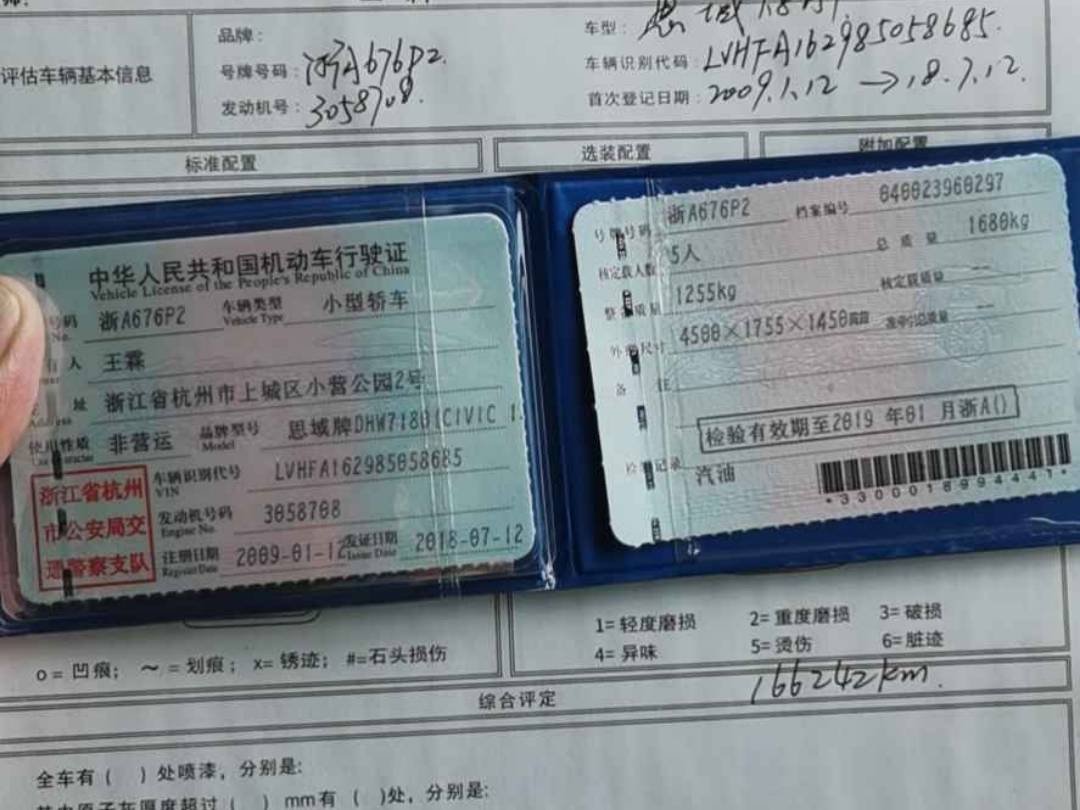 品牌：
车型：思域
评估车辆基本信息
号牌号码：浙A676P2.
车辆识别代码：LVHFA162985058685.
发动机号：3058708.
首次登记日期：2009.1.12 → 18.7.12.
标准配置
选装配置
附加配置
中华人民共和国机动车行驶证
Vehicle License of the People's Republic of China
号码 浙A676P2
No.
车辆类型 小型轿车
Vehicle Type
人 王霖
址 浙江省杭州市上城区小营公园2号
Address
使用性质 非营运
品牌型号 思域牌DHW71801(CIVIC 1.
Model
浙江省杭州
市公安局交
通警察支队
车辆识别代号 LVHFA162985058685
VIN
发动机号码 3058708
Engine No.
注册日期 2009-01-12
Register Date
发证日期 2018-07-12
Issue Date
号牌号码 浙A676P2
档案编号 040023960297
核定载人数 5人
总质量 1680kg
整备质量 1255kg
核定载质量 --
外廓尺寸 4500×1755×1450mm
准牵引总质量 --
备注
检验有效期至2019 年01 月浙A()
检验记录
汽油
*3300018994441*
o= 凹痕； ～ = 划痕； x= 锈迹； #=石头损伤
1= 轻度磨损 2= 重度磨损 3= 破损
4= 异味 5= 烫伤 6= 脏迹
综合评定
166242km.
全车有（ ）处喷漆，分别是:
mm有（ )处，分别是: